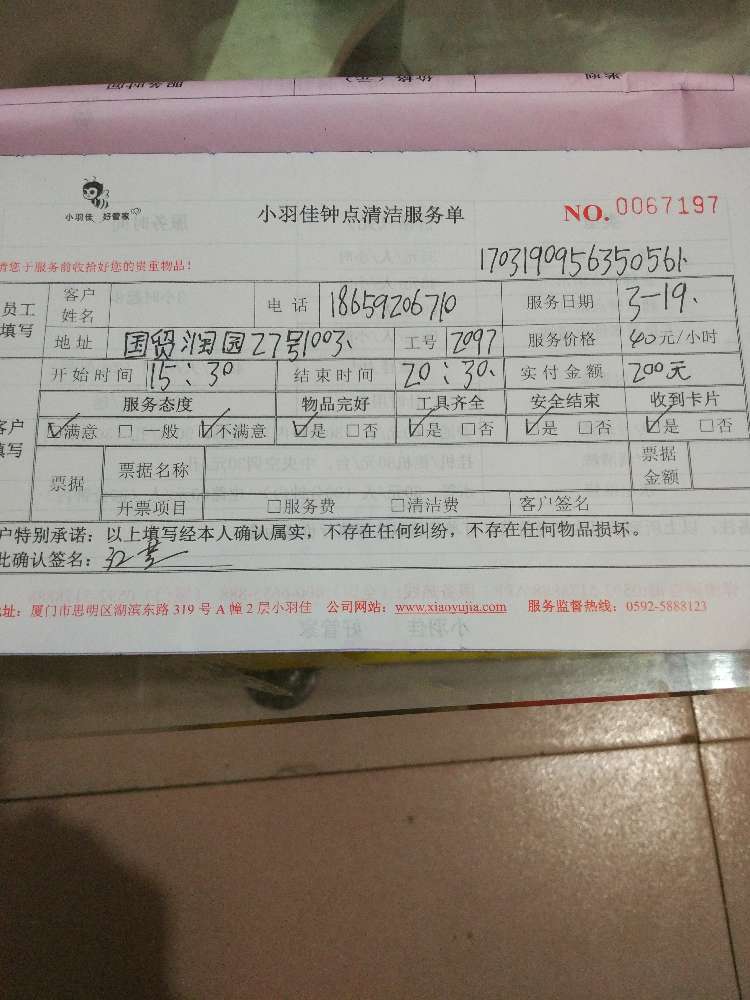 服务时间 价格(元) 类别
小羽佳 好管家
小羽佳钟点清洁服务单
NO. 0067197
请您于服务前收拾好您的贵重物品！
1703190956350561
员工填写 客户姓名 电话 18659206710 服务日期 3-19.
地址 国贸润园27号1003、 工号 2097 服务价格 40元/小时
开始时间 15:30 结束时间 20:30、 实付金额 200元
客户填写 服务态度 物品完好 工具齐全 安全结束 收到卡片
☑满意 □一般 ☑不满意 ☑是 □否 ☑是 □否 ☑是 □否 ☑是 □否
票据 票据名称 票据金额
开票项目 □服务费 □清洁费 客户签名
户特别承诺：以上填写经本人确认属实，不存在任何纠纷，不存在任何物品损坏。
此确认签名：
址：厦门市思明区湖滨东路 319 号 A 幢 2 层小羽佳 公司网站：www.xiaoyujia.com 服务监督热线：0592-5888123